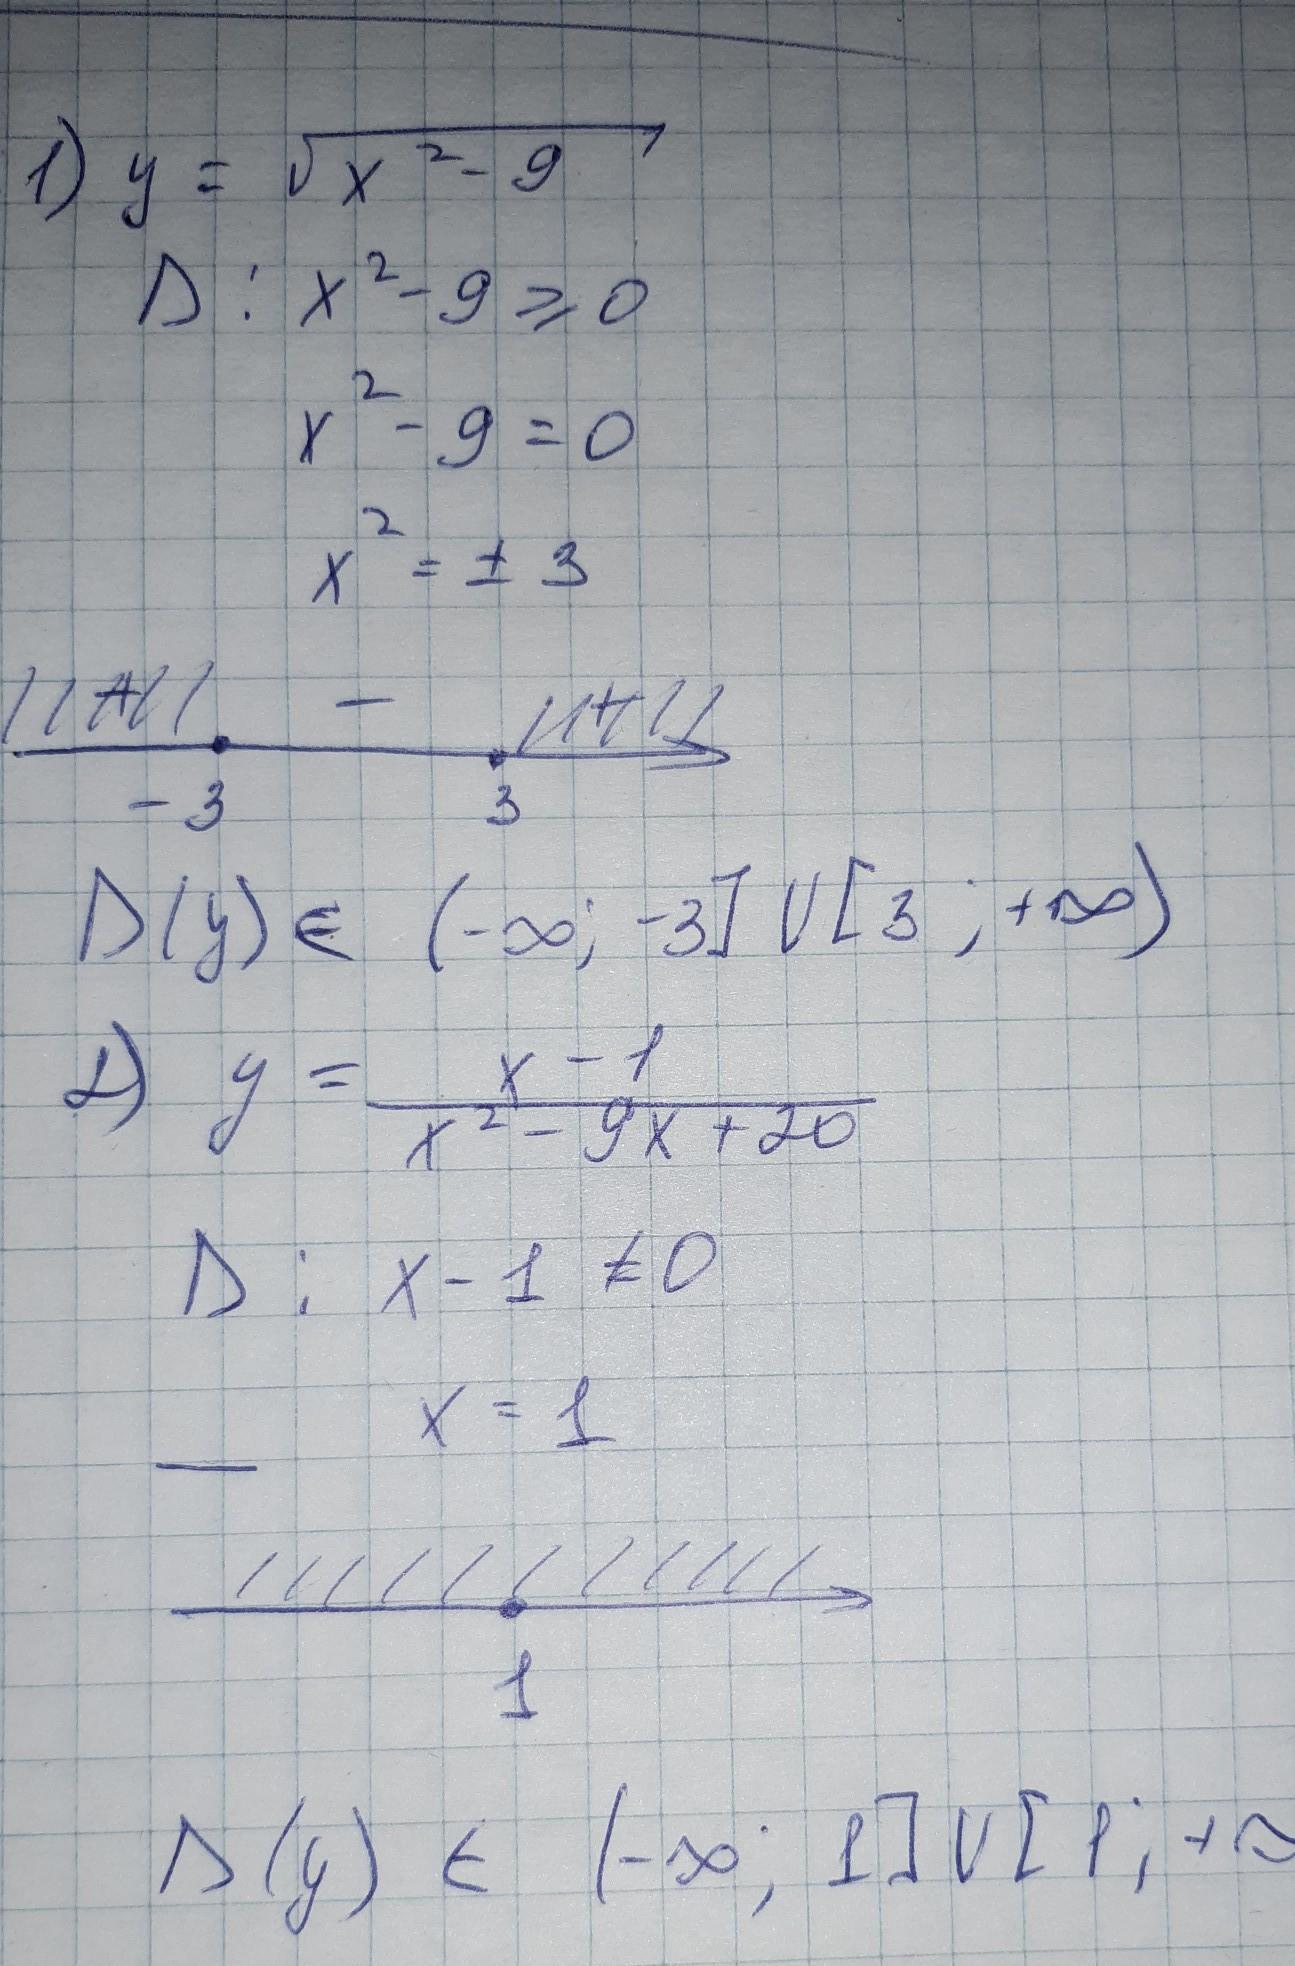 1) y = √x²-9
D: x²-9 ⩾ 0
x²-9=0
x² = ± 3
+ - +
-3 3
D(y) ∈ (-∞; -3] U [3; +∞)
2) y = (x-1)/(x²-9x+20)
D: x-1 ≠ 0
x = 1
1
D(y) ∈ (-∞; 1] U [1; +∞